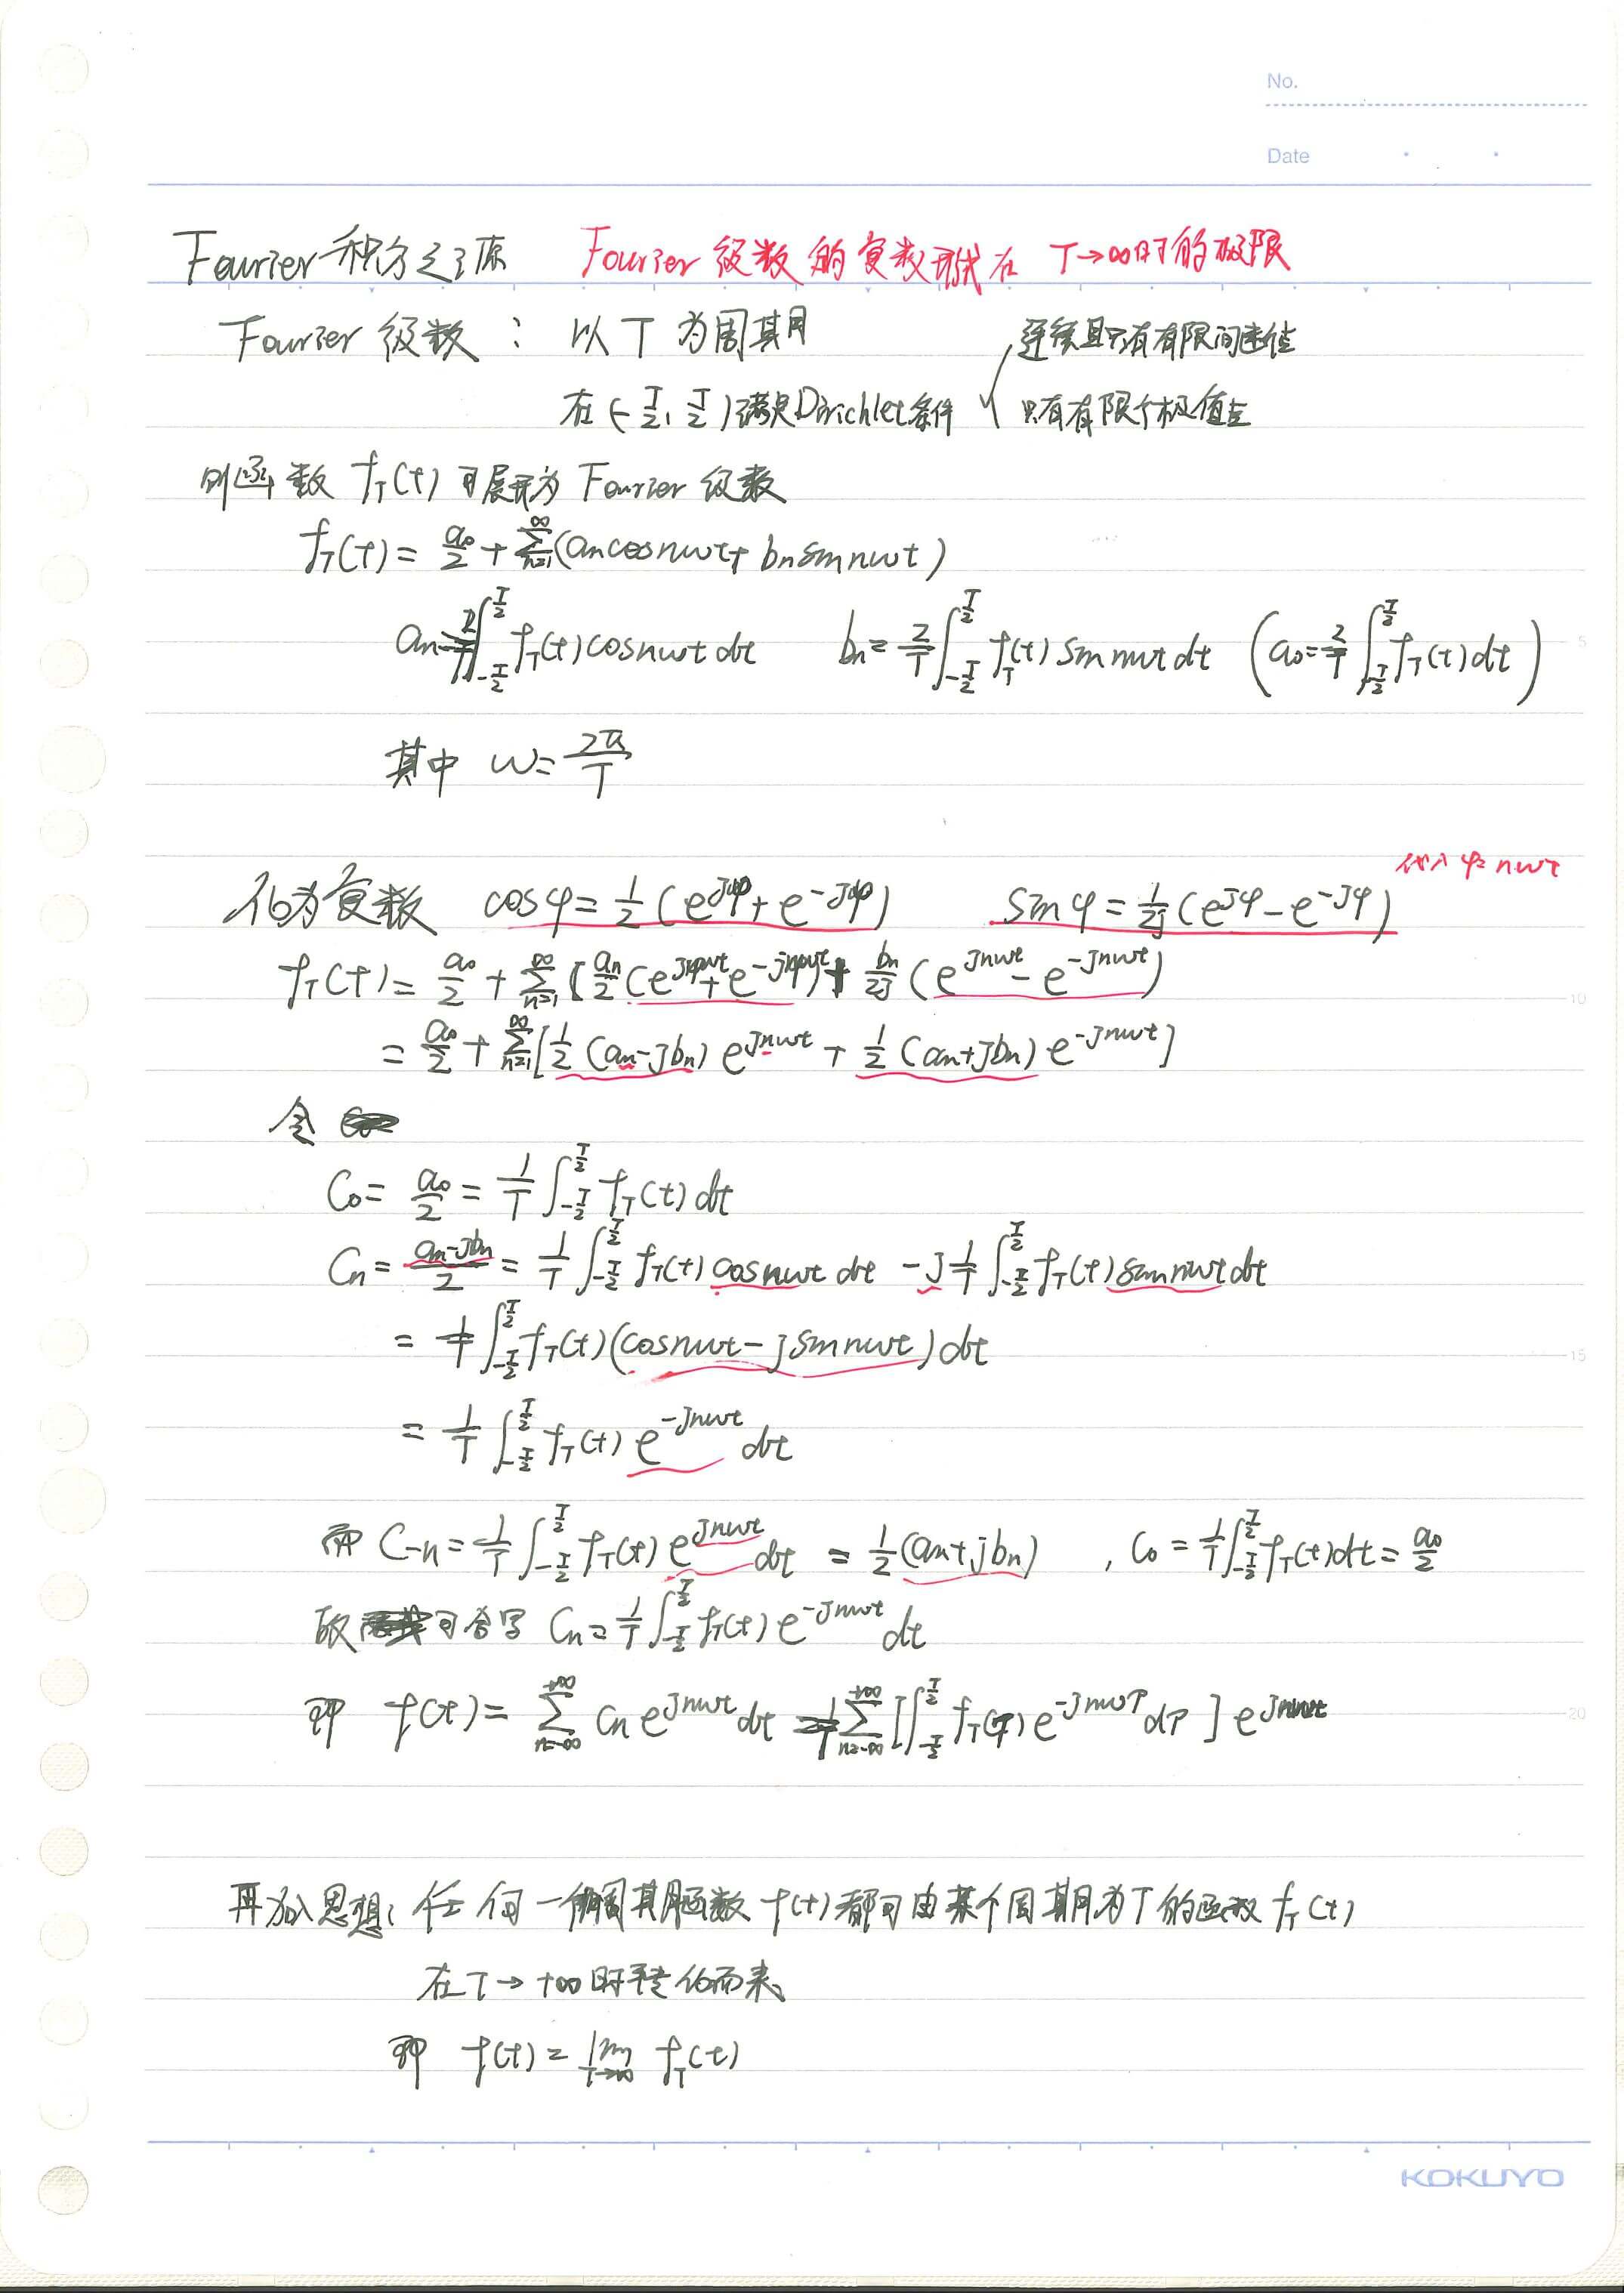 No.
Date
Fourier 积分之源 Fourier 级数的复数形式在 T→∞时的极限
Fourier 级数： 以 T 为周期
连续且只有有限间断点
在 (-T/2, T/2) 满足Dirichlet条件
只有有限个极值点
则函数 f_T(t) 可展开为 Fourier 级数
f_T(t) = a₀/2 + ∑_{n=1}^{∞} (aₙcosnωt + bₙsinnωt)
aₙ = 2/T ∫_{-T/2}^{T/2} f_T(t) cosnωt dt bₙ = 2/T ∫_{-T/2}^{T/2} f_T(t) sinnωt dt (a₀ = 2/T ∫_{-T/2}^{T/2} f_T(t) dt)
其中 ω = 2π/T
代入 φ=nωt
化为复数 cosφ = 1/2 (e^{jφ} + e^{-jφ}) sinφ = 1/2j (e^{jφ} - e^{-jφ})
f_T(t) = a₀/2 + ∑_{n=1}^{∞} [aₙ/2 (e^{jnωt} + e^{-jnωt}) + bₙ/2j (e^{jnωt} - e^{-jnωt})
= a₀/2 + ∑_{n=1}^{∞} [1/2 (aₙ - jbₙ) e^{jnωt} + 1/2 (aₙ + jbₙ) e^{-jnωt}]
令
C₀ = a₀/2 = 1/T ∫_{-T/2}^{T/2} f_T(t) dt
Cₙ = (aₙ - jbₙ)/2 = 1/T ∫_{-T/2}^{T/2} f_T(t) cosnωt dt - j 1/T ∫_{-T/2}^{T/2} f_T(t) sinnωt dt
= 1/T ∫_{-T/2}^{T/2} f_T(t) (cosnωt - jsinnωt) dt
= 1/T ∫_{-T/2}^{T/2} f_T(t) e^{-jnωt} dt
而 C₋ₙ = 1/T ∫_{-T/2}^{T/2} f_T(t) e^{jnωt} dt = 1/2 (aₙ + jbₙ) , C₀ = 1/T ∫_{-T/2}^{T/2} f_T(t) dt = a₀/2
故 可合写 Cₙ = 1/T ∫_{-T/2}^{T/2} f_T(t) e^{-jnωt} dt
即 f(t) = ∑_{n=-∞}^{+∞} Cₙ e^{jnωt} dt = 1/T ∑_{n=-∞}^{+∞} [∫_{-T/2}^{T/2} f_T(τ) e^{-jnωτ} dτ] e^{jnωt}
再加入思想: 任何一个非周期函数 f(t) 都可由某个周期为T的函数 f_T(t)
在 T→+∞时转化而来
即 f(t) = lim_{T→∞} f_T(t)
5
10
15
20
KOKUYO